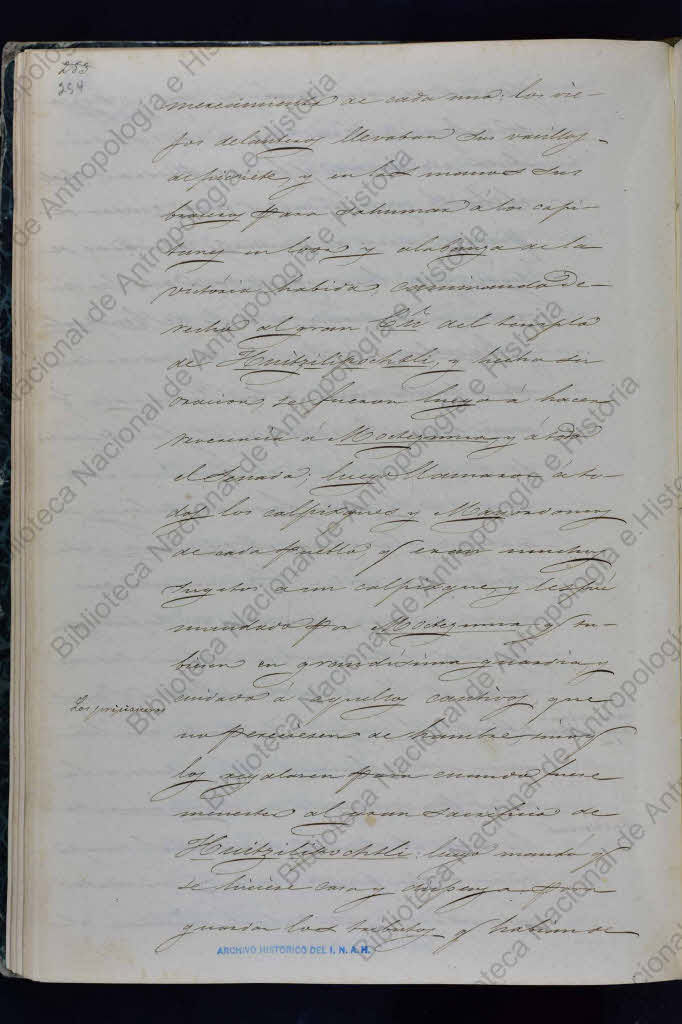 255
254
merecimiento de cada uno: los vie-
jos delanteros llevaban sus
de piciete, y en las manos sus
braceros para sahumar á los capi-
tanes en loor y alabanza de la
victoria habida, caminando de-
recho al gran Cú del templo
de Huitzilipochtli, y hecha su
oracion, se fueron luego á hacer
reverencia á Moctezuma, y á todo
el Senado; luego llamaron á to-
dos los calpixques y Mayordomos
de cada pueblo, q eran muchos
sugetos a un calpixque, y les fué
mandado por Moctezuma q tu-
biesen en grandísima guardia y
cuidado á aquellos cautivos que
Los prisioneros
no pereciesen de hambre, sino q
los regalasen para cuando fuese
menester al gran sacrificio de
Huitzilipochtli: luego mandó q
se hiciese casa y para
guardar los tributos q habian de
ARCHIVO HISTORICO DEL I. N. A. H.
Biblioteca Nacional de Antropología e Historia